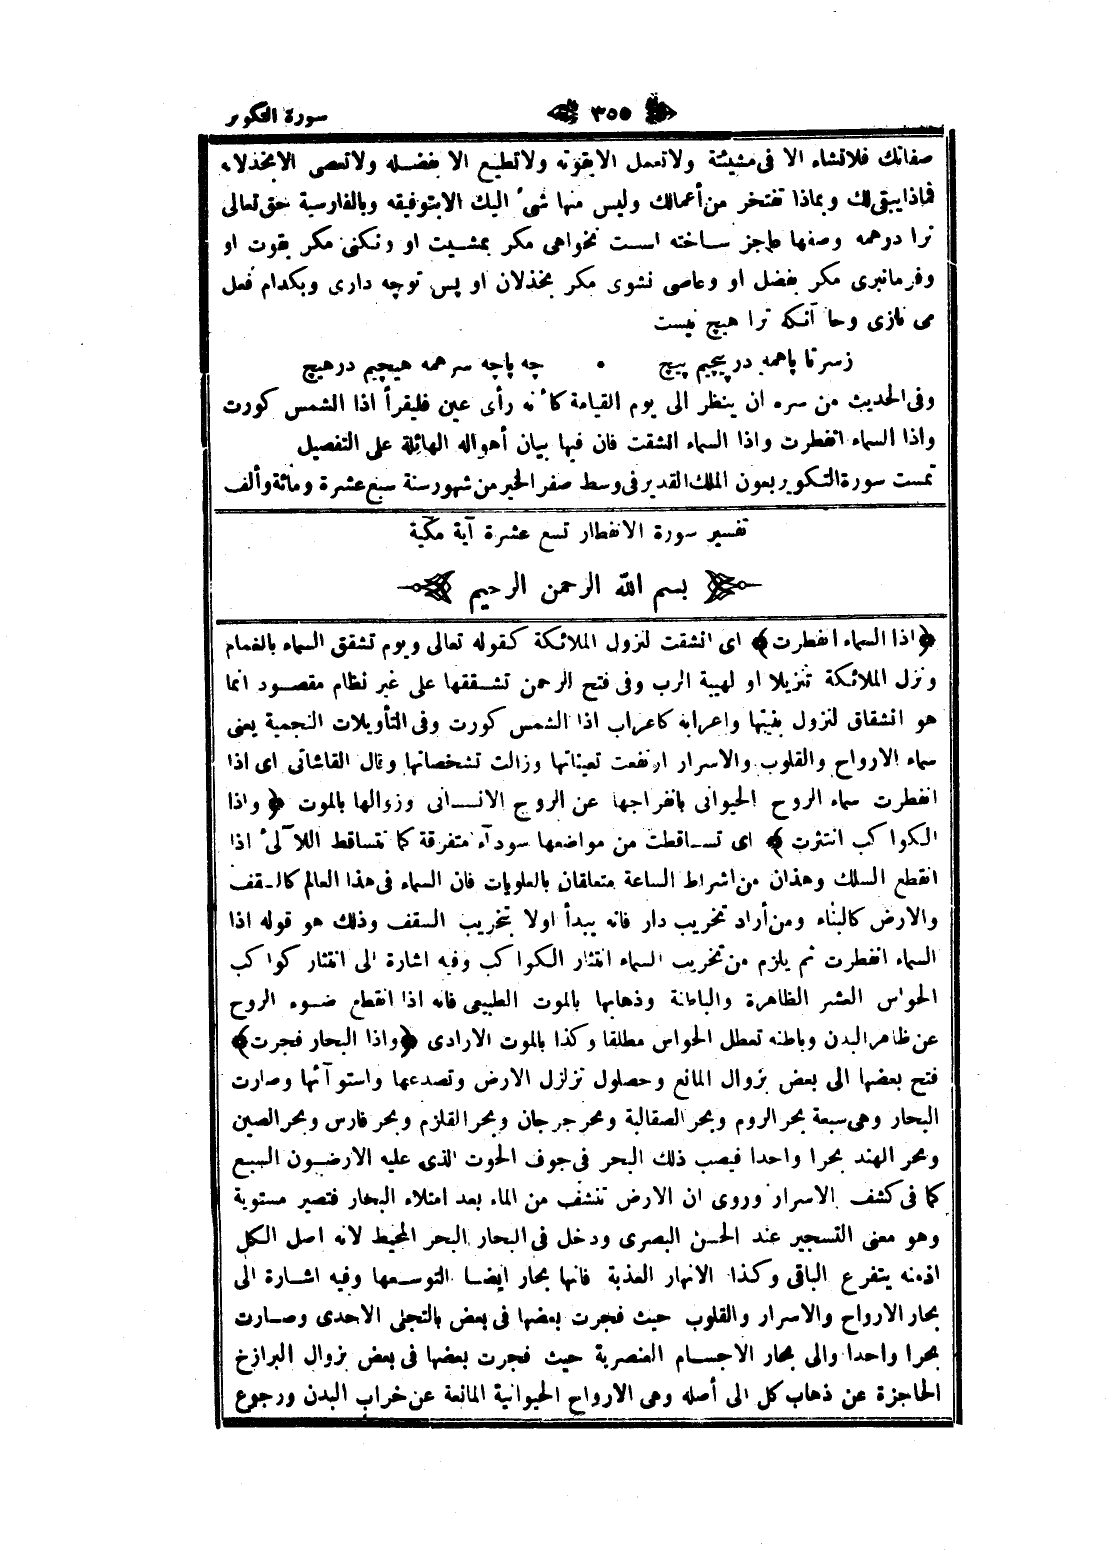 سورة التكوير ٣٥٥
صفاتك فلاتشاء الا فى مشيئة ولاتعمل الابقوته ولاتطيع الا بفضله ولاتعصى الابخذلانه
فماذايبقى لك وبماذا تفتخر من أعمالك وليس منها شىء اليك الابتوفيقه وبالفارسية حق تعالى
ترا درهمه وصفها عاجز ساخته است نخواهى مكر بمشيت او ونكنى مكر بقوت او
وفرمانبرى مكر بفضل او وعاصى نشوى مكر بخذلان او پس توچه دارى وبكدام فعل
مى نازى وحا آنكه ترا هيچ نيست
زسرتا پاهمه درپيچيم پيچ • چه پاچه سر همه هيچيم درهيچ
وفى الحديث من سره ان ينظر الى يوم القيامة كأنه رأى عين فليقرأ اذا الشمس كورت
واذا السماء انفطرت واذا السماء انشقت فان فيها بيان أهواله الهائلة على التفصيل
تمست سورة التكوير بعون الملك القدير فى وسط صفر الخير من شهور سنة سبع عشرة ومائة وألف
تفسير سورة الانفطار تسع عشرة آية مكية
بسم الله الرحمن الرحيم
﴿اذا السماء انفطرت﴾ اى انشقت لنزول الملائكة كقوله تعالى ويوم تشقق السماء بالغمام
ونزل الملائكة تنزيلا او لهيبة الرب وفى فتح الرحمن تشققها على غير نظام مقصود انما
هو انشقاق لتزول بنيتها واعرابه كاعراب اذا الشمس كورت وفى التأويلات النجمية يعنى
سماء الارواح والقلوب والاسرار ارتفعت تعيناتها وزالت تشخصاتها وقال القاشانى اى اذا
انفطرت سماء الروح الحيوانى بانفراجها عن الروح الانسانى وزوالها بالموت ﴿واذا
الكواكب انتثرت﴾ اى تساقطت من مواضعها سودآء متفرقة كما تتساقط اللآلىء اذا
انقطع السلك وهذان من اشراط الساعة متعلقان بالعلويات فان السماء فى هذا العالم كالسقف
والارض كالبناء ومن أراد تخريب دار فانه يبدأ اولا بتخريب السقف وذلك هو قوله اذا
السماء انفطرت ثم يلزم من تخريب السماء انتثار الكواكب وفيه اشارة الى انتثار كواكب
الحواس العشر الظاهرة والباطنة وذهابها بالموت الطبيعى فانه اذا انقطع ضوء الروح
عن ظاهر البدن وباطنه تعطل الحواس مطلقا وكذا بالموت الارادى ﴿واذا البحار فجرت﴾
فتح بعضها الى بعض بزوال المانع وحصلول تزلزل الارض وتصدعها واستوآئها وصارت
البحار وهى سبعة بحر الروم وبحر الصقالبة وبحر جرجان وبحر القلزم وبحر فارس وبحر الصين
وبحر الهند بحرا واحدا فيصب ذلك البحر فى جوف الحوت الذى عليه الارضون السبع
كما فى كشف الاسرار وروى ان الارض تنشف من الماء بعد امتلاء البحار فتصير مستوية
وهو معنى التسجير عند الحسن البصرى ودخل فى البحار البحر المحيط لانه اصل الكل
اذمنه يتفرع الباقى وكذا الانهار العذبة فانها بحار ايضا التوسعها وفيه اشارة الى
بحار الارواح والاسرار والقلوب حيث فجرت بعضها فى بعض بالتجلى الاحدى وصارت
بحرا واحدا والى بحار الاجسام العنصرية حيث فجرت بعضها فى بعض بزوال البرازخ
الحاجزة عن ذهاب كل الى أصله وهى الارواح الحيوانية المانعة عن خراب البدن ورجوع